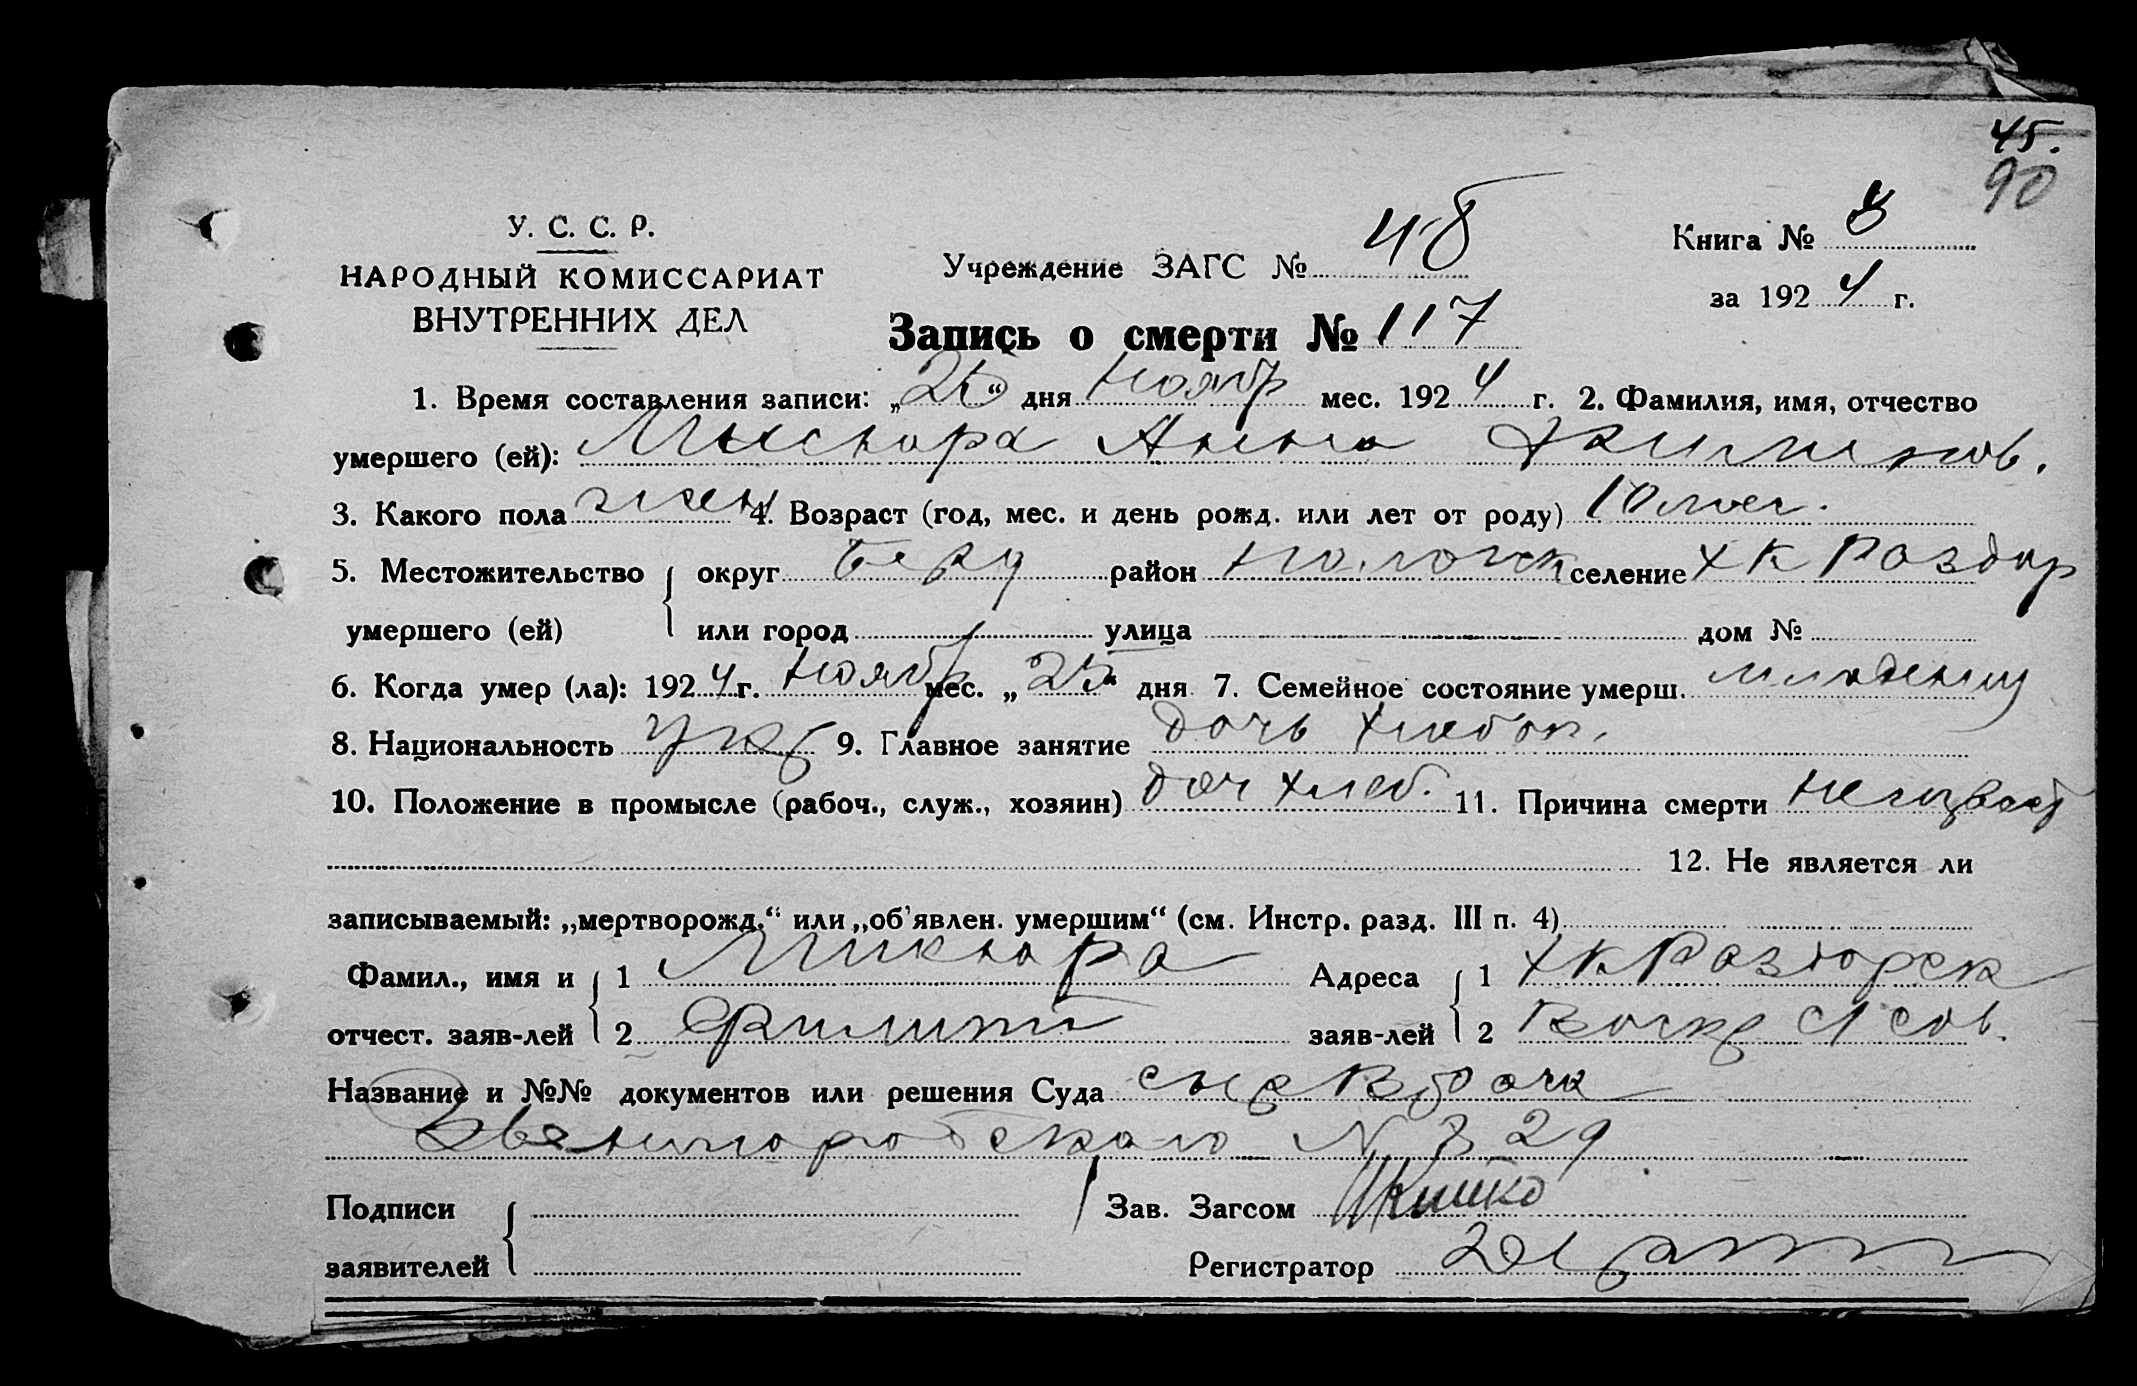 45.
90
У. С. С. Р.
НАРОДНЫЙ КОМИССАРИАТ
ВНУТРЕННИХ ДЕЛ
Учреждение ЗАГС № 48
Книга № 8
за 1924 г.
Запись о смерти № 117
1. Время составления записи: „25“ дня Ноябр мес. 1924 г. 2. Фамилия, имя, отчество
умершего (ей): Анна
3. Какого пола жен 4. Возраст (год, мес. и день рожд. или лет от роду) 10 мес.
5. Местожительство округ район селение Хк Раздор
умершего (ей) или город улица дом №
6. Когда умер (ла): 1924 г. Ноябр мес. „25“ дня 7. Семейное состояние умерш. младениц
8. Национальность укр 9. Главное занятие дочь хлебоп.
10. Положение в промысле (рабоч., служ., хозяин) доч хлеб. 11. Причина смерти неизвест
12. Не является ли
записываемый: „мертворожд.“ или „об’явлен. умершим“ (см. Инстр. разд. III п. 4)
Фамил., имя и 1 Адреса 1 Хк Раздорск
отчест. заяв-лей 2 Филипп заяв-лей 2
Название и №№ документов или решения Суда
N 329
Подписи Зав. Загсом
заявителей Регистратор